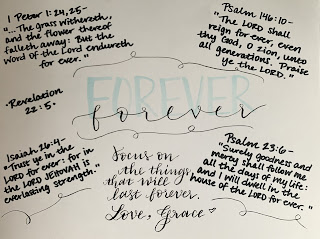 1 Peter 1:24,25-
"...The grass withereth,
and the flower thereof
falleth away: But the
word of the Lord endureth
for ever."
Psalm 146:10-
"The LORD shall
reign for ever, even
thy God, O zion, unto
all generations. Praise
ye the LORD."
FOREVER
forever
·Revelation
22:5·
Isaiah 26:4-
"Trust ye in the
LORD for ever: for in
the LORD JEHOVAH is
everlasting strength."
Focus on
the things
that will
last forever.
Love, Grace
Psalm 23:6-
"Surely goodness and
mercy shall follow me
all the days of my life:
and I will dwell in the
house of the LORD for ever."